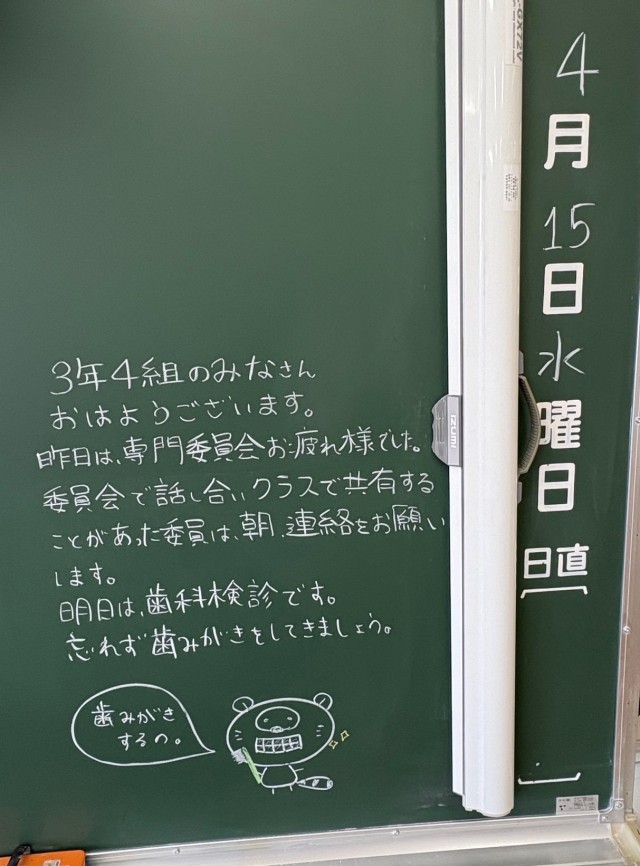 3年4組のみなさん
おはようございます。
昨日は、専門委員会お疲れ様でした。
委員会で話し合いクラスで共有する
ことがあった委員は、朝、連絡をお願い
します。
明日は、歯科検診です。
忘れず歯みがきをしてきましょう。
歯みがき
するの。
4
月
15
日
水
曜
日
日直
IZUMI